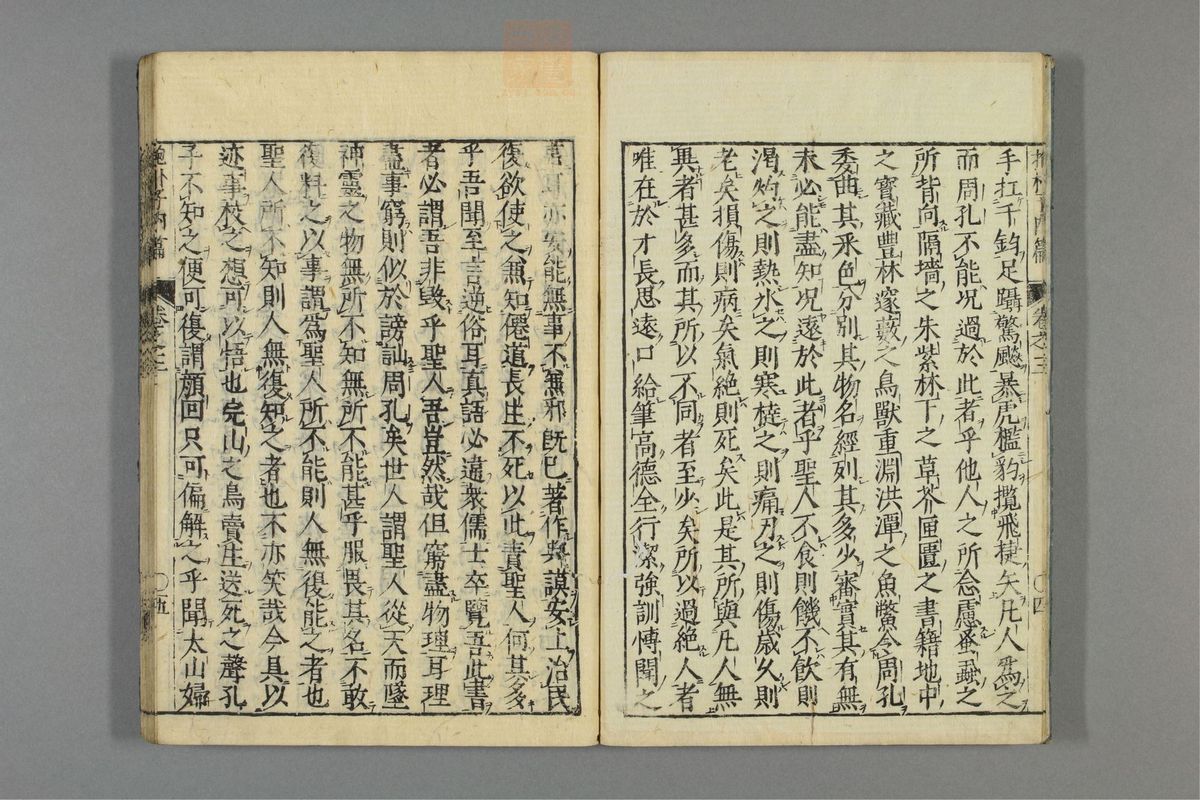 手扛千鈞足躡驚飈暴虎檻豹攬飛捷矢凡人爲之
而周孔不能况過於此者乎他人之所念慮蚤蝨之
所背向隔墻之朱紫林下之草芥匣匱之書籍地中
之寶藏豐林邃藪之鳥獸重淵洪潭之魚鱉令周孔
委曲其采色分別其物名經列其多少審實其有無
未必能盡知况遠於此者乎聖人不食則饑不飲則
渇灼之則熱氷之則寒撻之則痛刃之則傷歳久則
老矣損傷則病矣氣絶則死矣此是其所與凡人無
異者甚多而其所以不同者至少矣所以過絶人者
唯在於才長思遠口給筆高德全行潔強訓博聞之
事耳亦安能無事不兼邪既已著作典謨安上治民
復欲使之兼知僊道長生不死以此責聖人何其多
乎吾聞至言逆俗耳真語必違衆儒士卒覽吾此書
者必謂吾非毁乎聖人吾豈然哉但窮盡物理耳理
盡事窮則似於謗訕周孔矣世人謂聖人從天而墜
神靈之物無所不知無所不能甚乎服畏其名不敢
復料之以事謂爲聖人所不能則人無復能之者也
聖人所不知則人無復知之者也不亦笑哉今具以
近事校之想可以悟也完山之鳥賣生送死之聲孔
子不知之便可復謂顔回只可偏解之乎聞太山婦
抱朴子內篇 卷之三 〇四
抱朴子內篇 卷之三 〇五